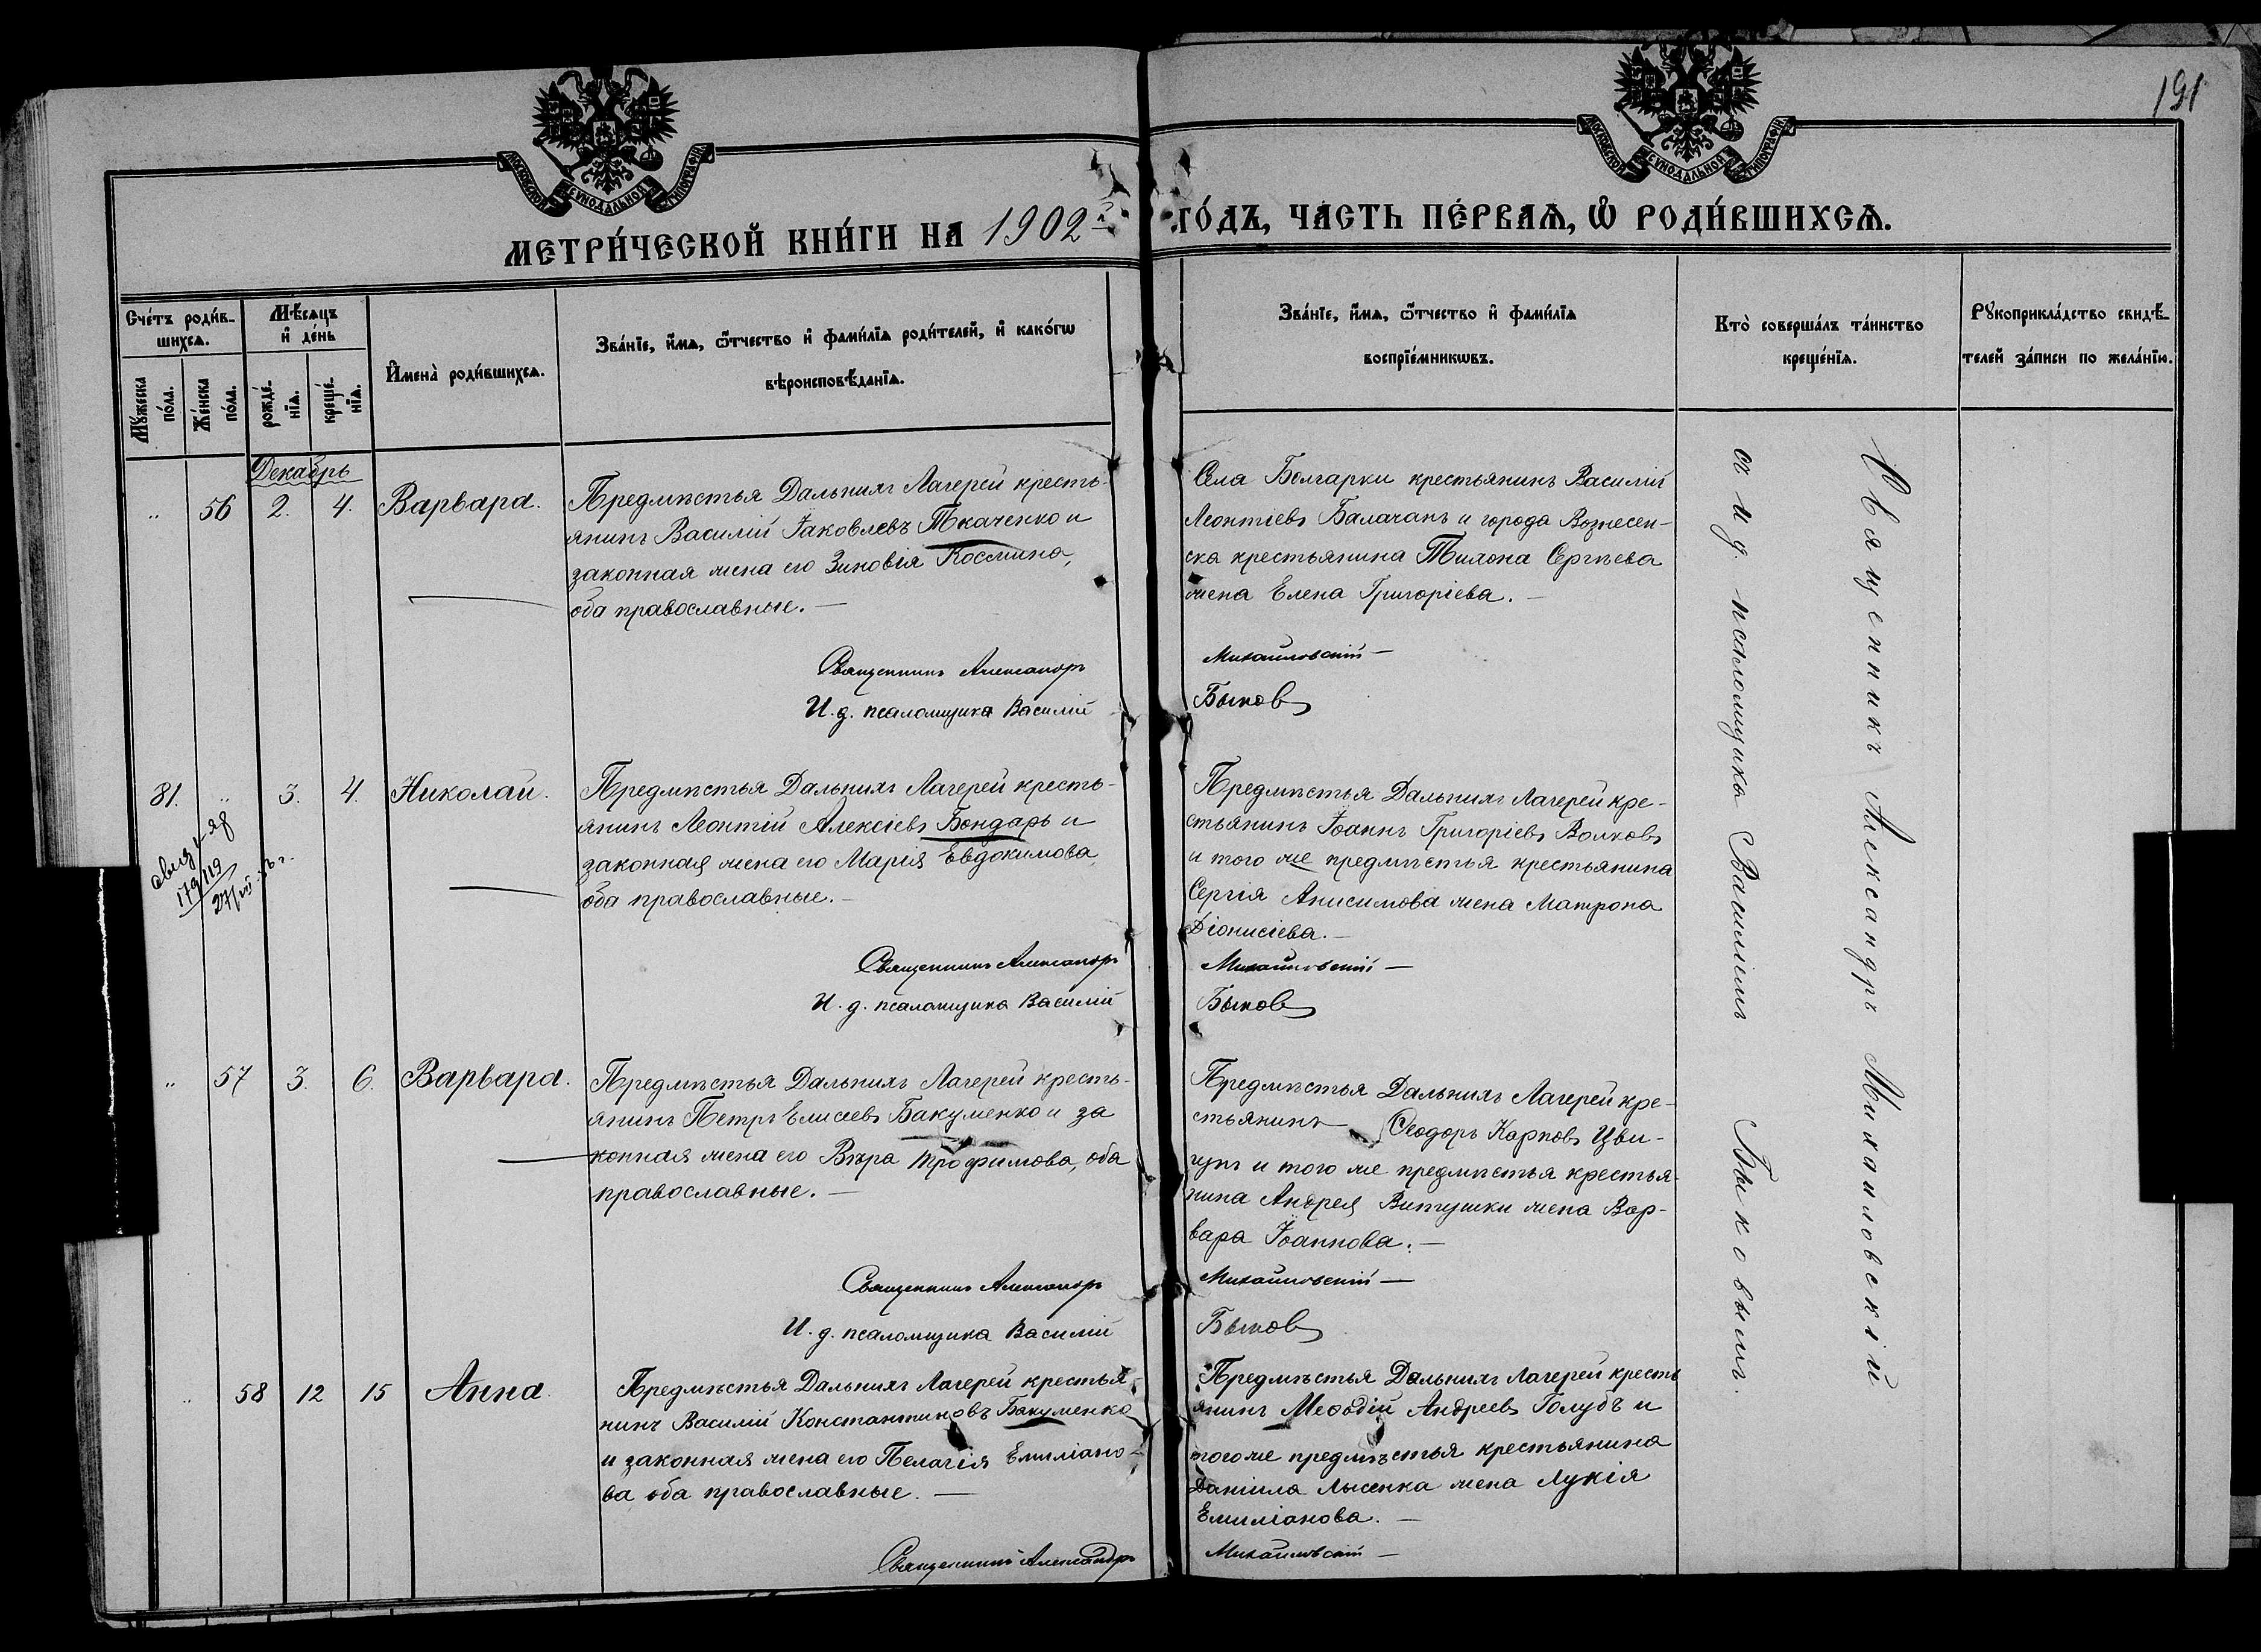 191
МОСКОВСКОЙ СѴНОДАЛЬНОЙ ТИПОГРАФІИ
МОСКОВСКОЙ СѴНОДАЛЬНОЙ ТИПОГРАФІИ
МЕТРИ́ЧЕСКОЙ КНИ́ГИ НА 1902 й ГО́ДЪ, ЧА́СТЬ ПЕ́РВАѦ, Ѿ РОДИ́ВШИХСѦ.
Сче́тъ роди́в-
шихсѧ.
Мꙋ́жеска
по́ла.
Же́нска
по́ла.
Мѣ́сѧцъ
и҆ де́нь
рожде́-
нїѧ.
креще́-
нїѧ.
И҆мена̀ роди́вшихсѧ.
Зва́нїе, и҆́мѧ, ѻ҆́тчество и҆ фами́лїѧ роди́телей, и҆ како́гѡ
вѣроисповѣ́данїѧ.
Зва́нїе, и҆́мѧ, ѻ҆́тчество и҆ фами́лїѧ
воспрїе́мникѡвъ.
Кто̀ соверша́лъ та́инство
креще́нїѧ.
Рꙋкоприкла́дство свидѣ́-
телей за́писи по жела́нїю.
Декабрь
„ 56 2. 4. Варвара.
Предмѣстья Дальнихъ Лагерей кресть-
янинъ Василій Іаковлевъ Ткаченко и
законная жена его Зиновія Космина,
оба православные. —
Священникъ Александръ
И. д. псаломщика Василій
Села Болгарки крестьянинъ Василій
Леонтіевъ Балачанъ и города Вознесен-
ска крестьянина Тихона Сергѣева
жена Елена Григоріева. —
Михайловскій —
Быковъ
81. „ 3. 4. Николай.
Предмѣстья Дальнихъ Лагерей кресть-
янинъ Леонтій Алексіевъ Бондарь и
законная жена его Марія Евдокимова,
оба православные. —
Священникъ Александръ
И. д. псаломщика Василій
Предмѣстья Дальнихъ Лагерей кре-
стьянинъ Іоаннъ Григоріевъ Волковъ
и того же предмѣстья крестьянина
Сергія Анисимова жена Матрона
Діонисіева. —
Михайловскій —
Быковъ
„ 57 3. 6. Варвара.
Предмѣстья Дальнихъ Лагерей кресть-
янинъ Петръ Елисеевъ Бакуменко и за
конная жена его Вѣра Трофимова, оба
православные. —
Священникъ Александръ
И. д. псаломщика Василій
Предмѣстья Дальнихъ Лагерей кре-
стьянинъ Ѳеодоръ Карповъ Цви-
гунъ и того же предмѣстья крестья-
нина Андрея Витушки жена Вар-
вара Іоаннова. —
Михайловскій —
Быковъ
„ 58 12 15 Анна
Предмѣстья Дальнихъ Лагерей крестья-
нинъ Василій Константиновъ Бакуменко
и законная жена его Пелагія Емиліано-
ва оба православные. —
Священникъ Александръ
Предмѣстья Дальнихъ Лагерей кресть
янинъ Меѳодій Андреевъ Голубъ и
того же предмѣстья крестьянина
Даніила Лысенка жена Лукія
Емиліанова. —
Михайловскій —
Священникъ Александръ Михайловскій
съ и. д. псаломщика Василіемъ Быковымъ.